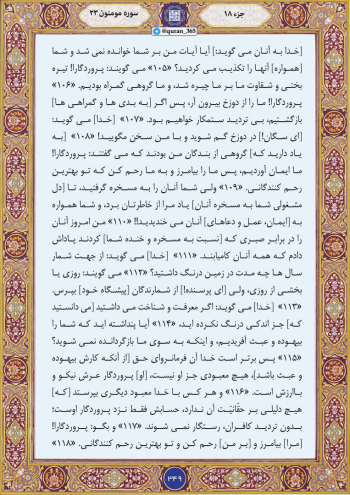 جزء ۱۸
سوره مومنون ۲۳
@quran_365
[خدا به آنان می گوید:] آیا آیات من بر شما خوانده نمی شد و شما
[همواره] آنها را تکذیب می کردید؟ «۱۰۵» می گویند: پروردگارا! تیره
بختی و شقاوت ما بر ما چیره شد، و ما گروهی گمراه بودیم. «۱۰۶»
پروردگارا! ما را از دوزخ بیرون آر، پس اگر [به بدی ها و گمراهی ها]
بازگشتیم، بی تردید ستمکار خواهیم بود. «۱۰۷» [خدا] می گوید:
[ای سگان!] در دوزخ گم شوید و با من سخن مگویید! «۱۰۸» [به
یاد دارید که] گروهی از بندگان من بودند که می گفتند: پروردگارا!
ما ایمان آوردیم، پس ما را بیامرز و به ما رحم کن که تو بهترین
رحم کنندگانی. «۱۰۹» ولی شما آنان را به مسخره گرفتید، تا [دل
مشغولی شما به مسخره آنان] یاد مرا از خاطرتان برد، و شما همواره
به [ایمان، عمل و دعاهای] آنان می خندیدید!! «۱۱۰» من امروز آنان
را در برابر صبری که [نسبت به مسخره و خنده شما] کردند پاداش
دادم که همه آنان کامیابند. «۱۱۱» [خدا] می گوید: از جهت شمار
سال ها چه مدت در زمین درنگ داشتید؟ «۱۱۲» می گویند: روزی یا
بخشی از روزی، ولی [ای پرسنده!] از شمارندگان [پیشگاه خود] بپرس.
«۱۱۳» [خدا] می گوید: اگر معرفت و شناخت می داشتید [می دانستید
که] جز اندکی درنگ نکرده اید. «۱۱۴» آیا پنداشته اید که شما را
بیهوده و عبث آفریدیم، و اینکه به سوی ما بازگردانده نمی شوید؟
«۱۱۵» پس برتر است خدا آن فرمانروای حق [از آنکه کارش بیهوده
و عبث باشد]، هیچ معبودی جز او نیست، [او] پروردگار عرش نیکو و
باارزش است. «۱۱۶» و هر کس با خدا معبود دیگری بپرستد [که]
هیچ دلیلی بر حقّانیّت آن ندارد، حسابش فقط نزد پروردگار اوست؛
بدون تردید کافران، رستگار نمی شوند. «۱۱۷» و بگو: پروردگارا!
[مرا] بیامرز و [بر من] رحم کن و تو بهترین رحم کنندگانی. «۱۱۸»
۳۴۹